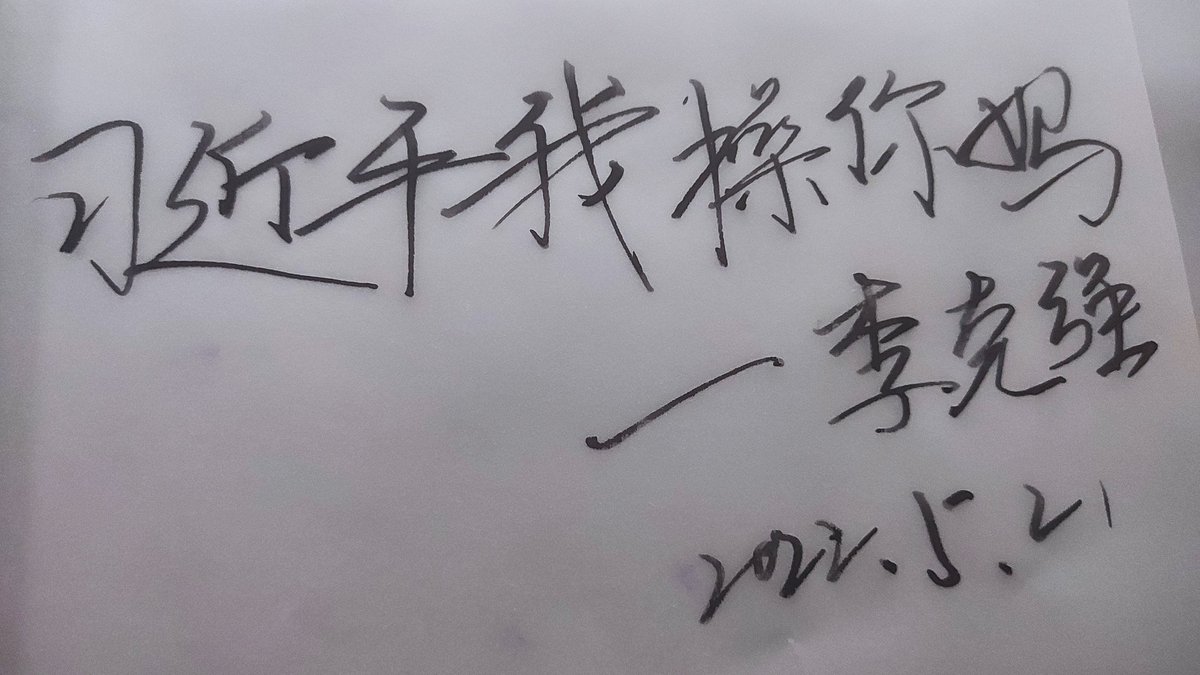 习近平我操你妈
—李克强
2022.5.21